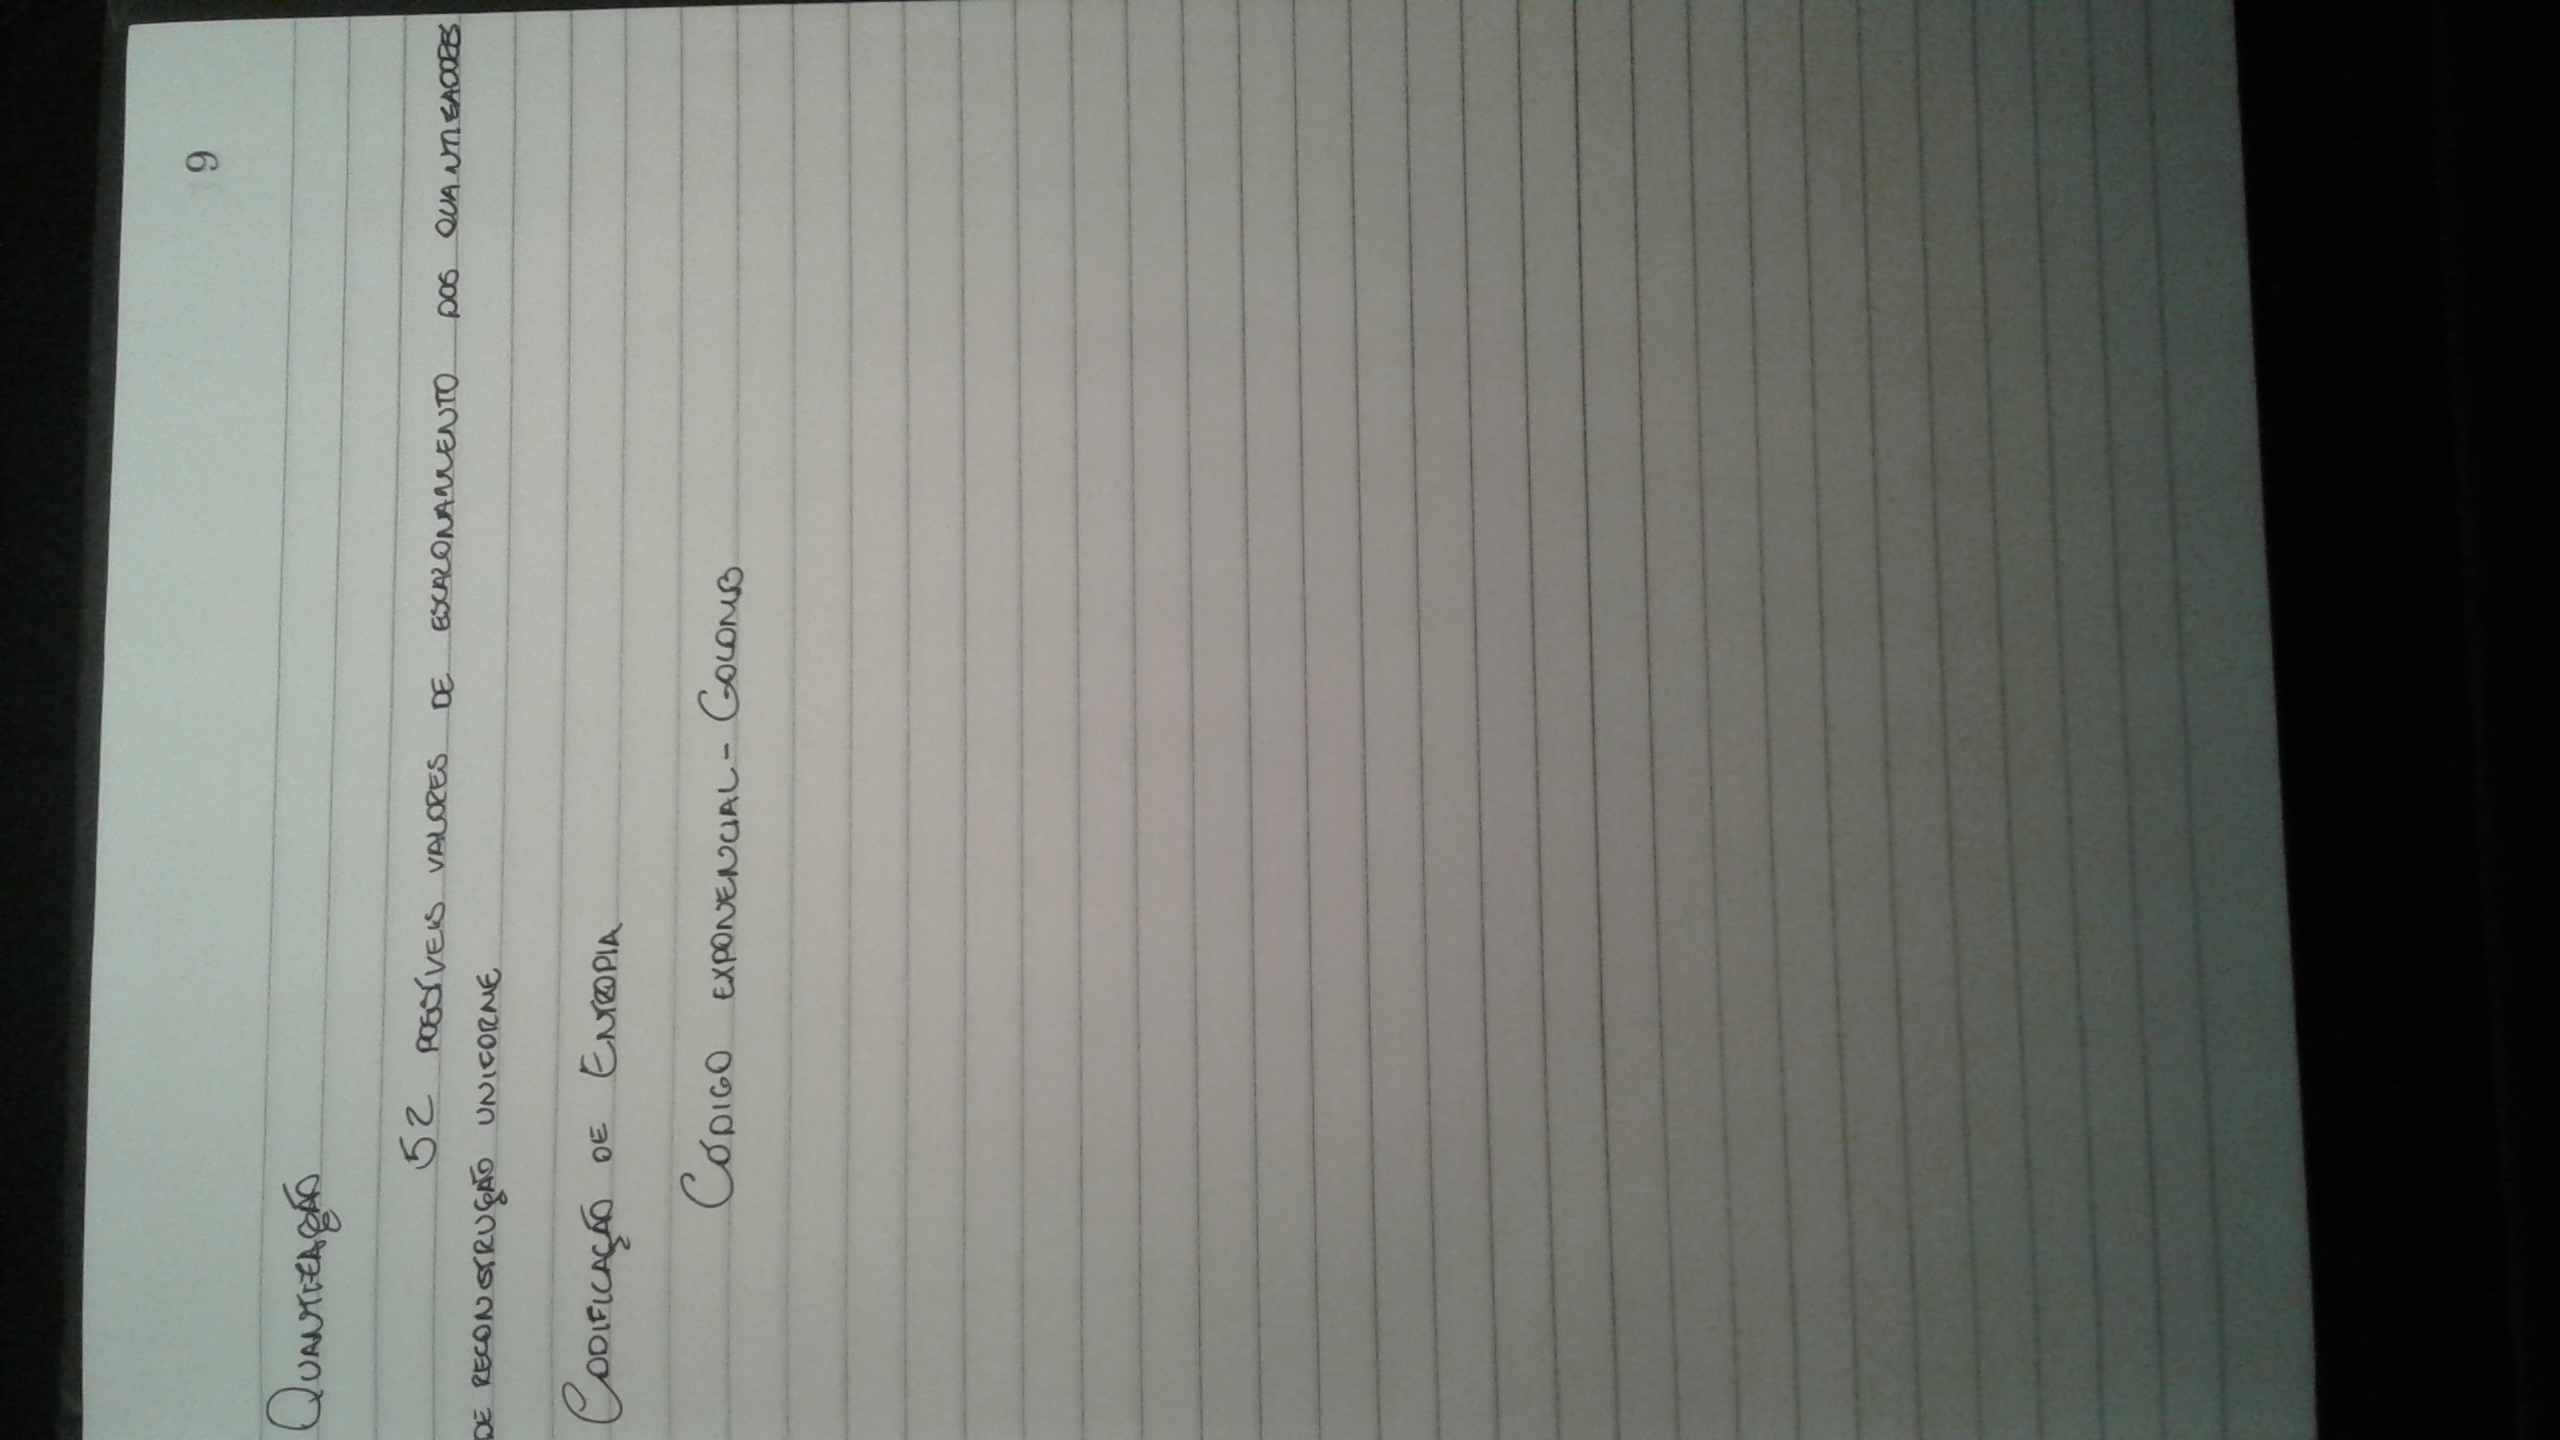 9
Quantização
52 possíveis valores de escalonamento dos quantizadores
de reconstrução uniforme
Codificação de Entropia
Código exponencial - Golomb